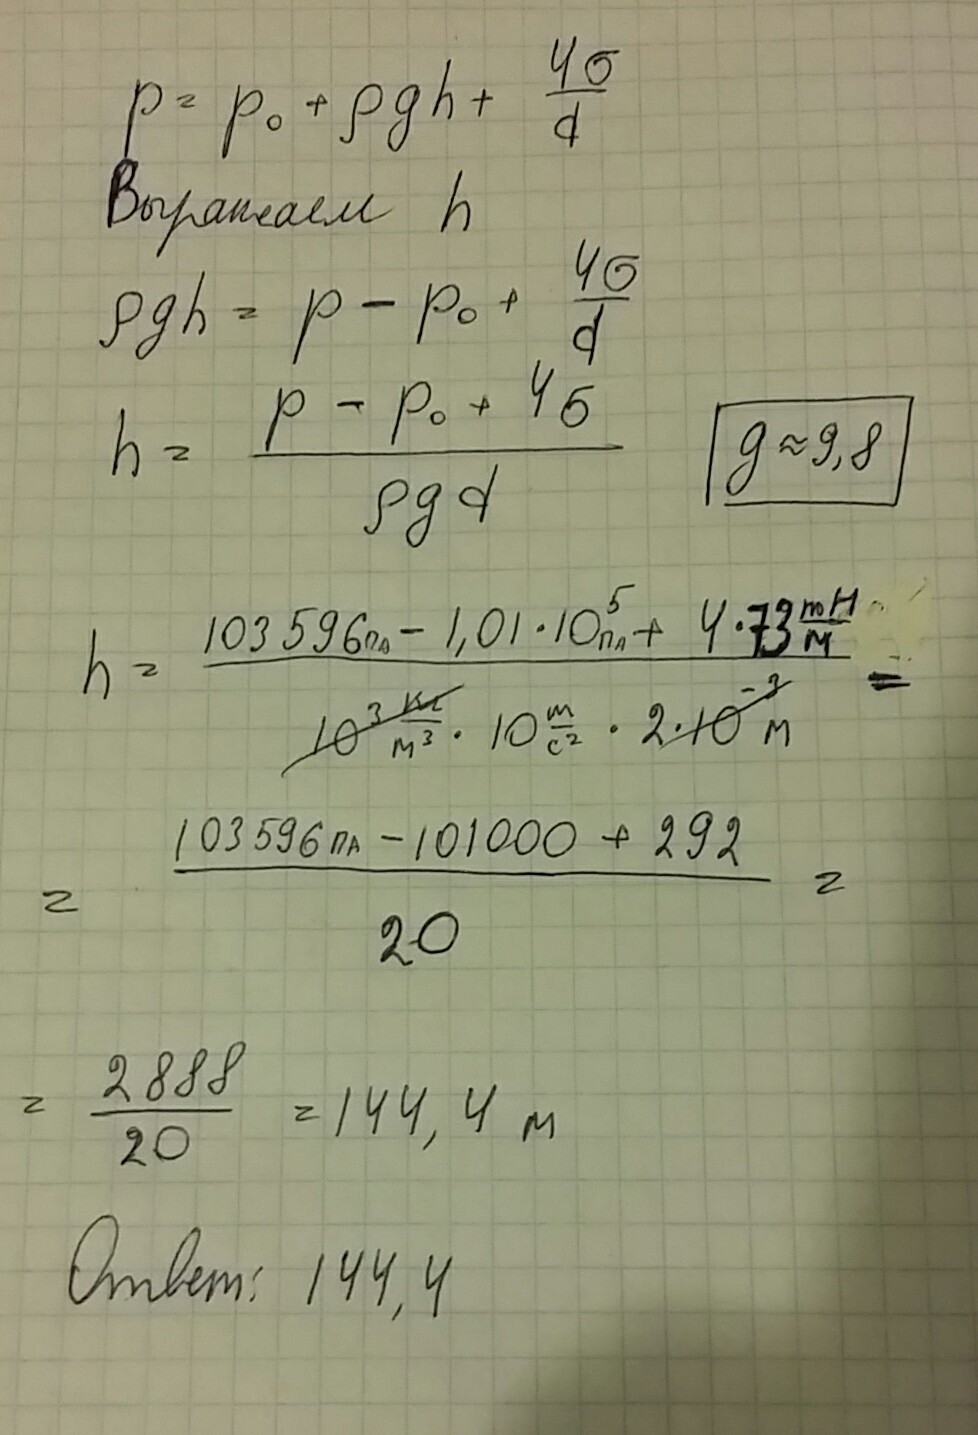 p = p₀ + ρgh + 4σ/d
Выражаем h
ρgh = p - p₀ + 4σ/d
h = (p - p₀ + 4σ)/(ρgd)
g ≈ 9,8
h = (103596 Па - 1,01·10⁵ Па + 4·73 mН/м)/(10³ кг/м³ · 10 м/с² · 2·10⁻³ м) =
= (103596 Па - 101000 + 292)/20 =
= 2888/20 = 144,4 м
Ответ: 144,4